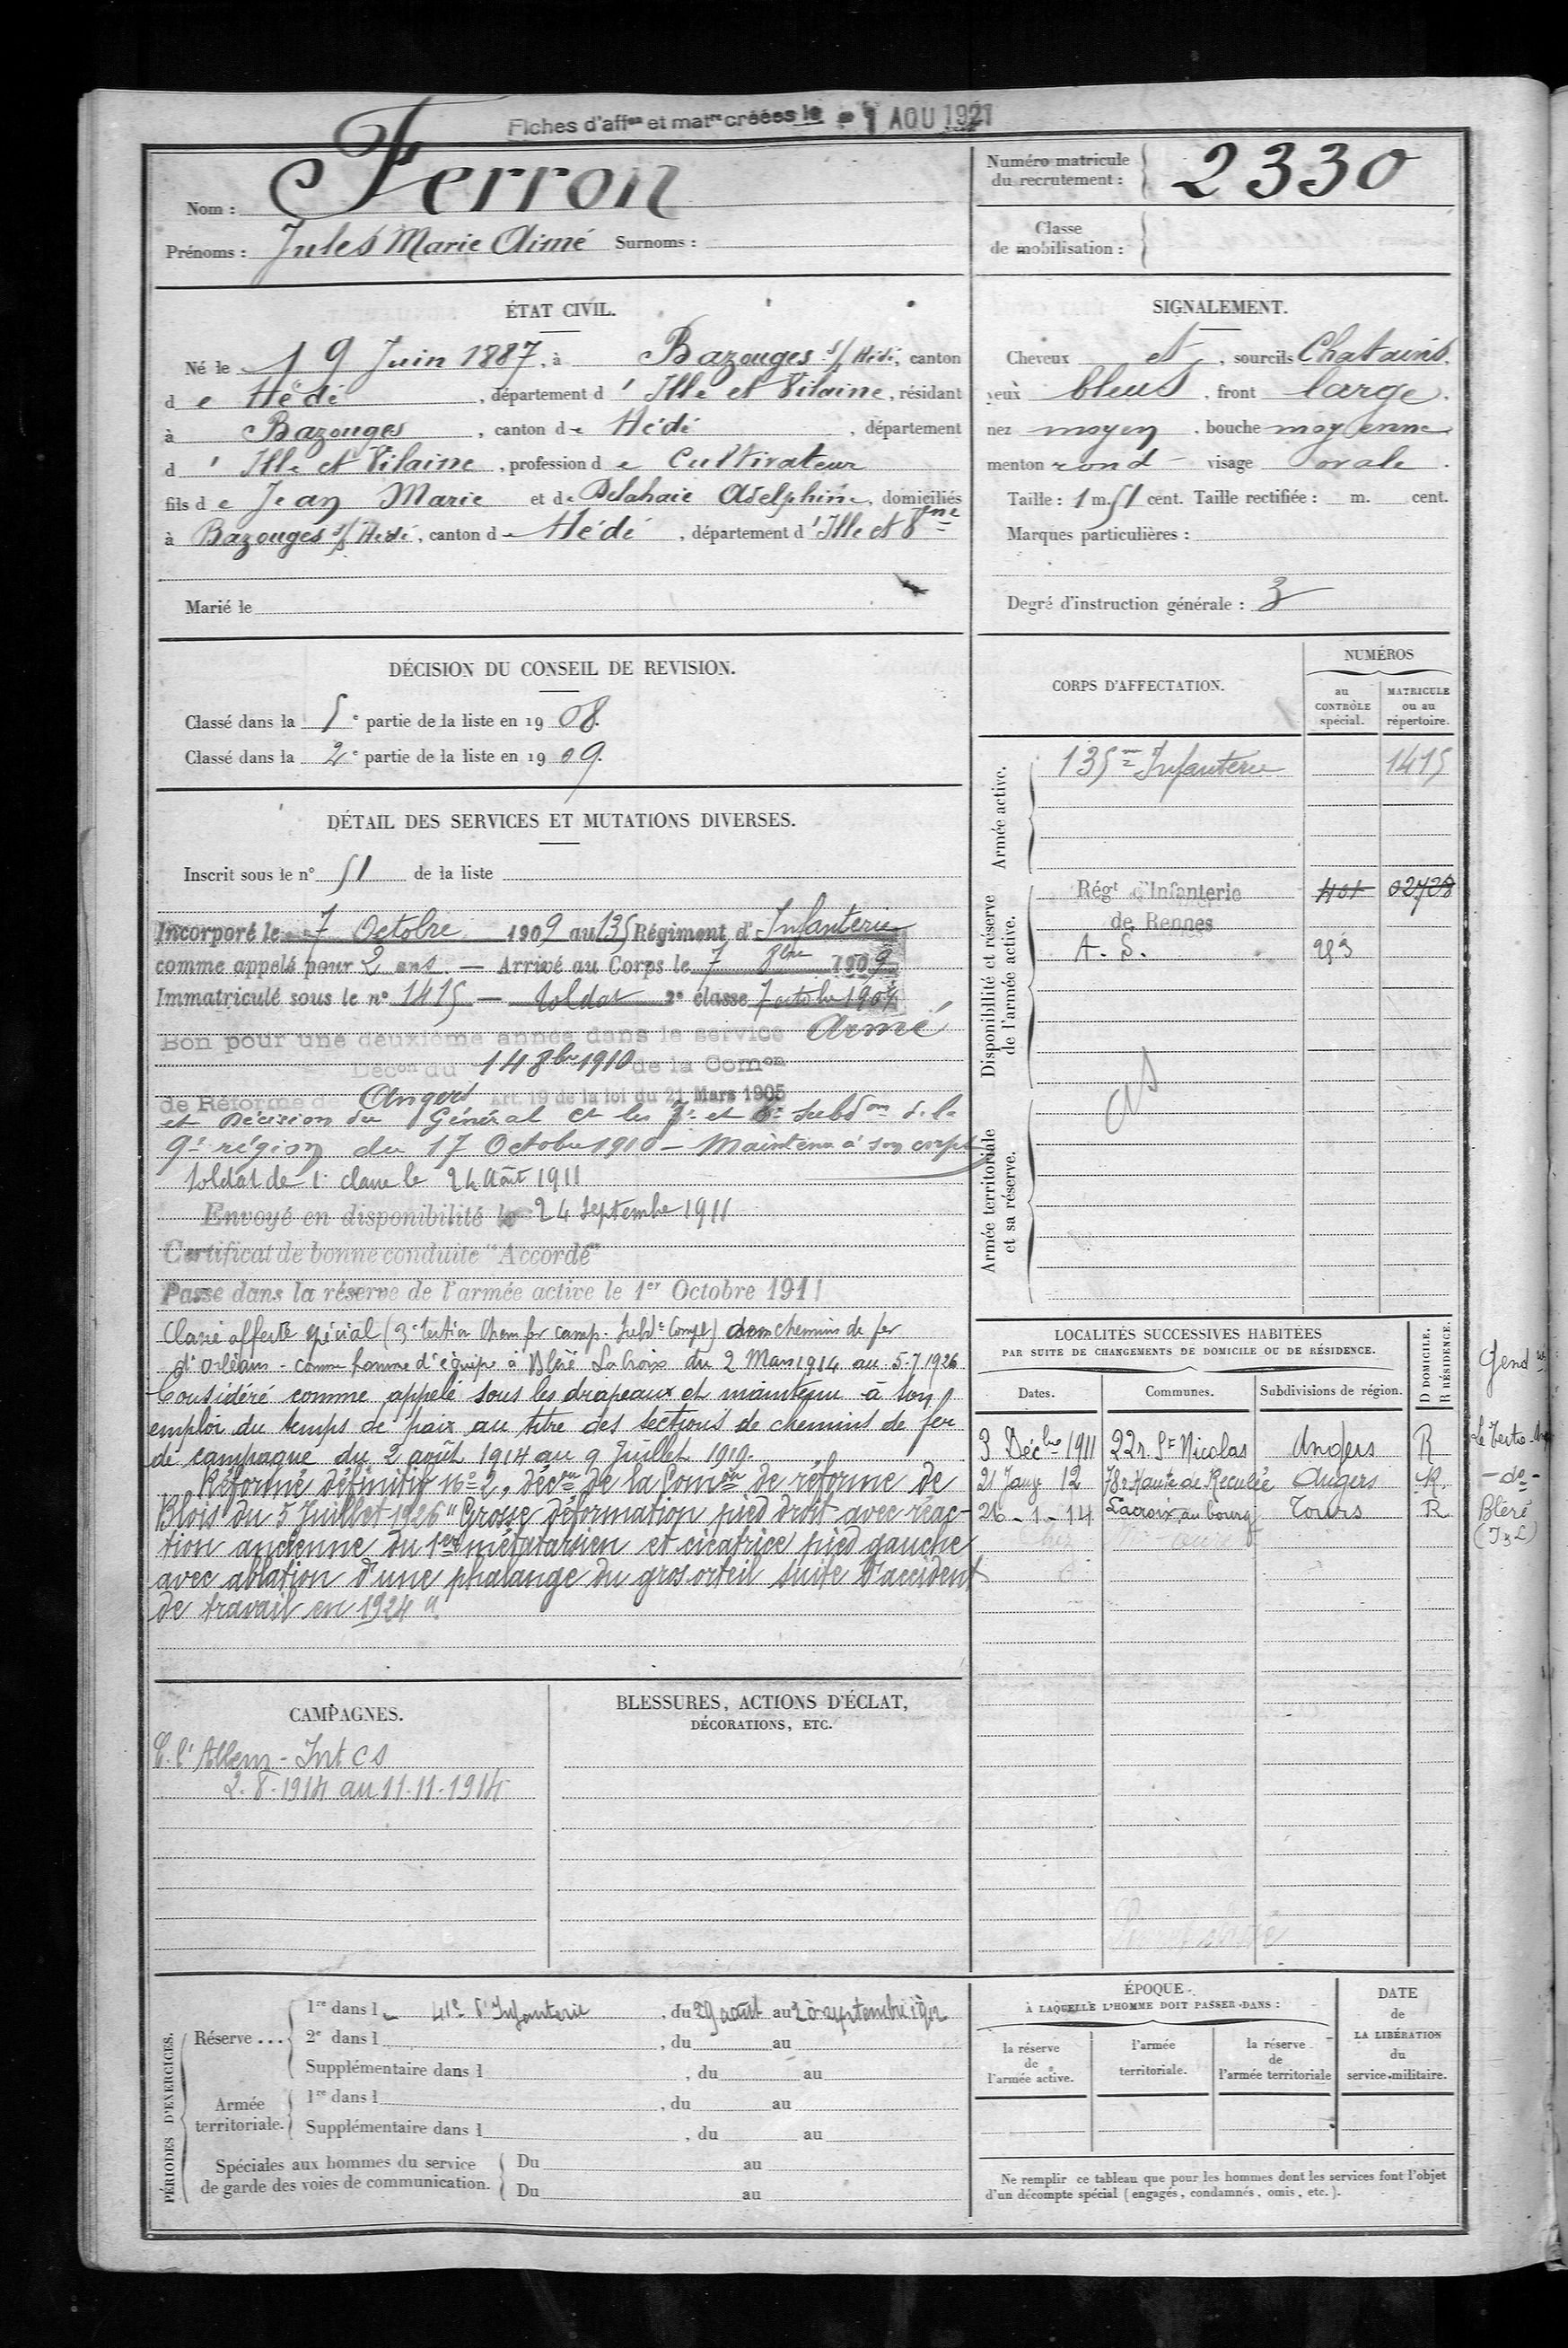 Fiches d'affon et matre créées le - 1 AOU 1921
Nom : Ferron
Prénoms : Jules Marie Aimé Surnoms :
Numéro matricule
du recrutement : 2330
Classe
de mobilisation :
ÉTAT CIVIL.
Né le 19 Juin 1887, à Bazouges s/ Hédé, canton
de Hédé, département d'Ille et Vilaine, résidant
à Bazouges, canton de Hédé, département
d'Ille et Vilaine, profession de Cultivateur
fils de Jean Marie et de Delahaie Adelphine, domiciliés
à Bazouges s/ Hédé, canton de Hédé, département d'Ille et Vne
Marié le
SIGNALEMENT.
Cheveux et, sourcils Chatains,
yeux bleus, front large,
nez moyen, bouche moyenne
menton rond visage ovale.
Taille : 1 m. 51 cent. Taille rectifiée : m. cent.
Marques particulières :
Degré d'instruction générale : 3
DÉCISION DU CONSEIL DE REVISION.
Classé dans la 5e partie de la liste en 1908.
Classé dans la 2e partie de la liste en 1909.
DÉTAIL DES SERVICES ET MUTATIONS DIVERSES.
Inscrit sous le n° 51 de la liste
Incorporé le 7 Octobre 1909 au 135 Régiment d'Infanterie
comme appelé pour 2 ans. — Arrivé au Corps le 7 8bre 1909
Immatriculé sous le n° 1415 — Soldat 2e classe 7 octobre 1909
Bon pour une deuxième année dans le service Armé
Décon du 14 8bre 1910 de la Comon
de Réforme de Angers Art. 19 de la loi du 21 Mars 1905
et Décision du Général Ct les 7e et 8e Subdons de la
9e région du 17 Octobre 1910 - Maintenu à son corps
Soldat de 1e classe le 24 Août 1911
Envoyé en disponibilité le 24 Septembre 1911
Certificat de bonne conduite "Accordé"
Passé dans la réserve de l'armée active le 1er Octobre 1911
Classé affecté spécial (3e Section Chem fer camp. Subdon Compl) dans chemins de fer
d'Orléans - comme homme d'équipe à Bléré La Croix du 2 Mars 1914 au 5-7 1926
Considéré comme appelé sous les drapeaux et maintenu à son
emploi du temps de paix au titre des sections de chemins de fer
de campagne du 2 août 1914 au 9 Juillet 1919.
Réformé définitif No 2, décon de la Comon de réforme de
Blois du 5 Juillet 1926 "Grosse déformation pied droit avec réac-
tion ancienne du 1er métatarsien et cicatrice pied gauche
avec ablation d'une phalange du gros orteil suite d'accident
de travail en 1924".
CORPS D'AFFECTATION.
NUMÉROS
au
CONTRÔLE
spécial.
MATRICULE
ou au
répertoire.
Armée active.
135me Infanterie 1415
Disponibilité et réserve
de l'armée active.
Régt d'Infanterie
de Rennes
401 02728
A. S. 293
Armée territoriale
et sa réserve.
as
LOCALITÉS SUCCESSIVES HABITÉES
PAR SUITE DE CHANGEMENTS DE DOMICILE OU DE RÉSIDENCE.
D DOMICILE.
R RÉSIDENCE.
Dates. Communes. Subdivisions de région.
3 Décbre 1911 22 r. St Nicolas Angers R
21 Janv 12 78 r Haute de Reculée Angers R. - do -
26 - 1 - 14 Lacroix au bourg Tours R Bléré
(I & L)
CAMPAGNES.
C. l'Allem - Int CS
2. 8. 1914 au 11-11-1914
BLESSURES, ACTIONS D'ÉCLAT,
DÉCORATIONS, ETC.
PÉRIODES D'EXERCICES.
Réserve ... 1re dans l e 41e d'Infanterie, du 29 août au 20 septembre 1912
2e dans l , du au
Supplémentaire dans l , du au
Armée
territoriale. 1re dans l , du au
Supplémentaire dans l , du au
Spéciales aux hommes du service
de garde des voies de communication.
Du au
Du au
ÉPOQUE
À LAQUELLE L'HOMME DOIT PASSER DANS :
la réserve
de
l'armée active.
l'armée
territoriale.
la réserve
de
l'armée territoriale
DATE
de
LA LIBÉRATION
du
service militaire.
Ne remplir ce tableau que pour les hommes dont les services font l'objet
d'un décompte spécial (engagés, condamnés, omis, etc.).